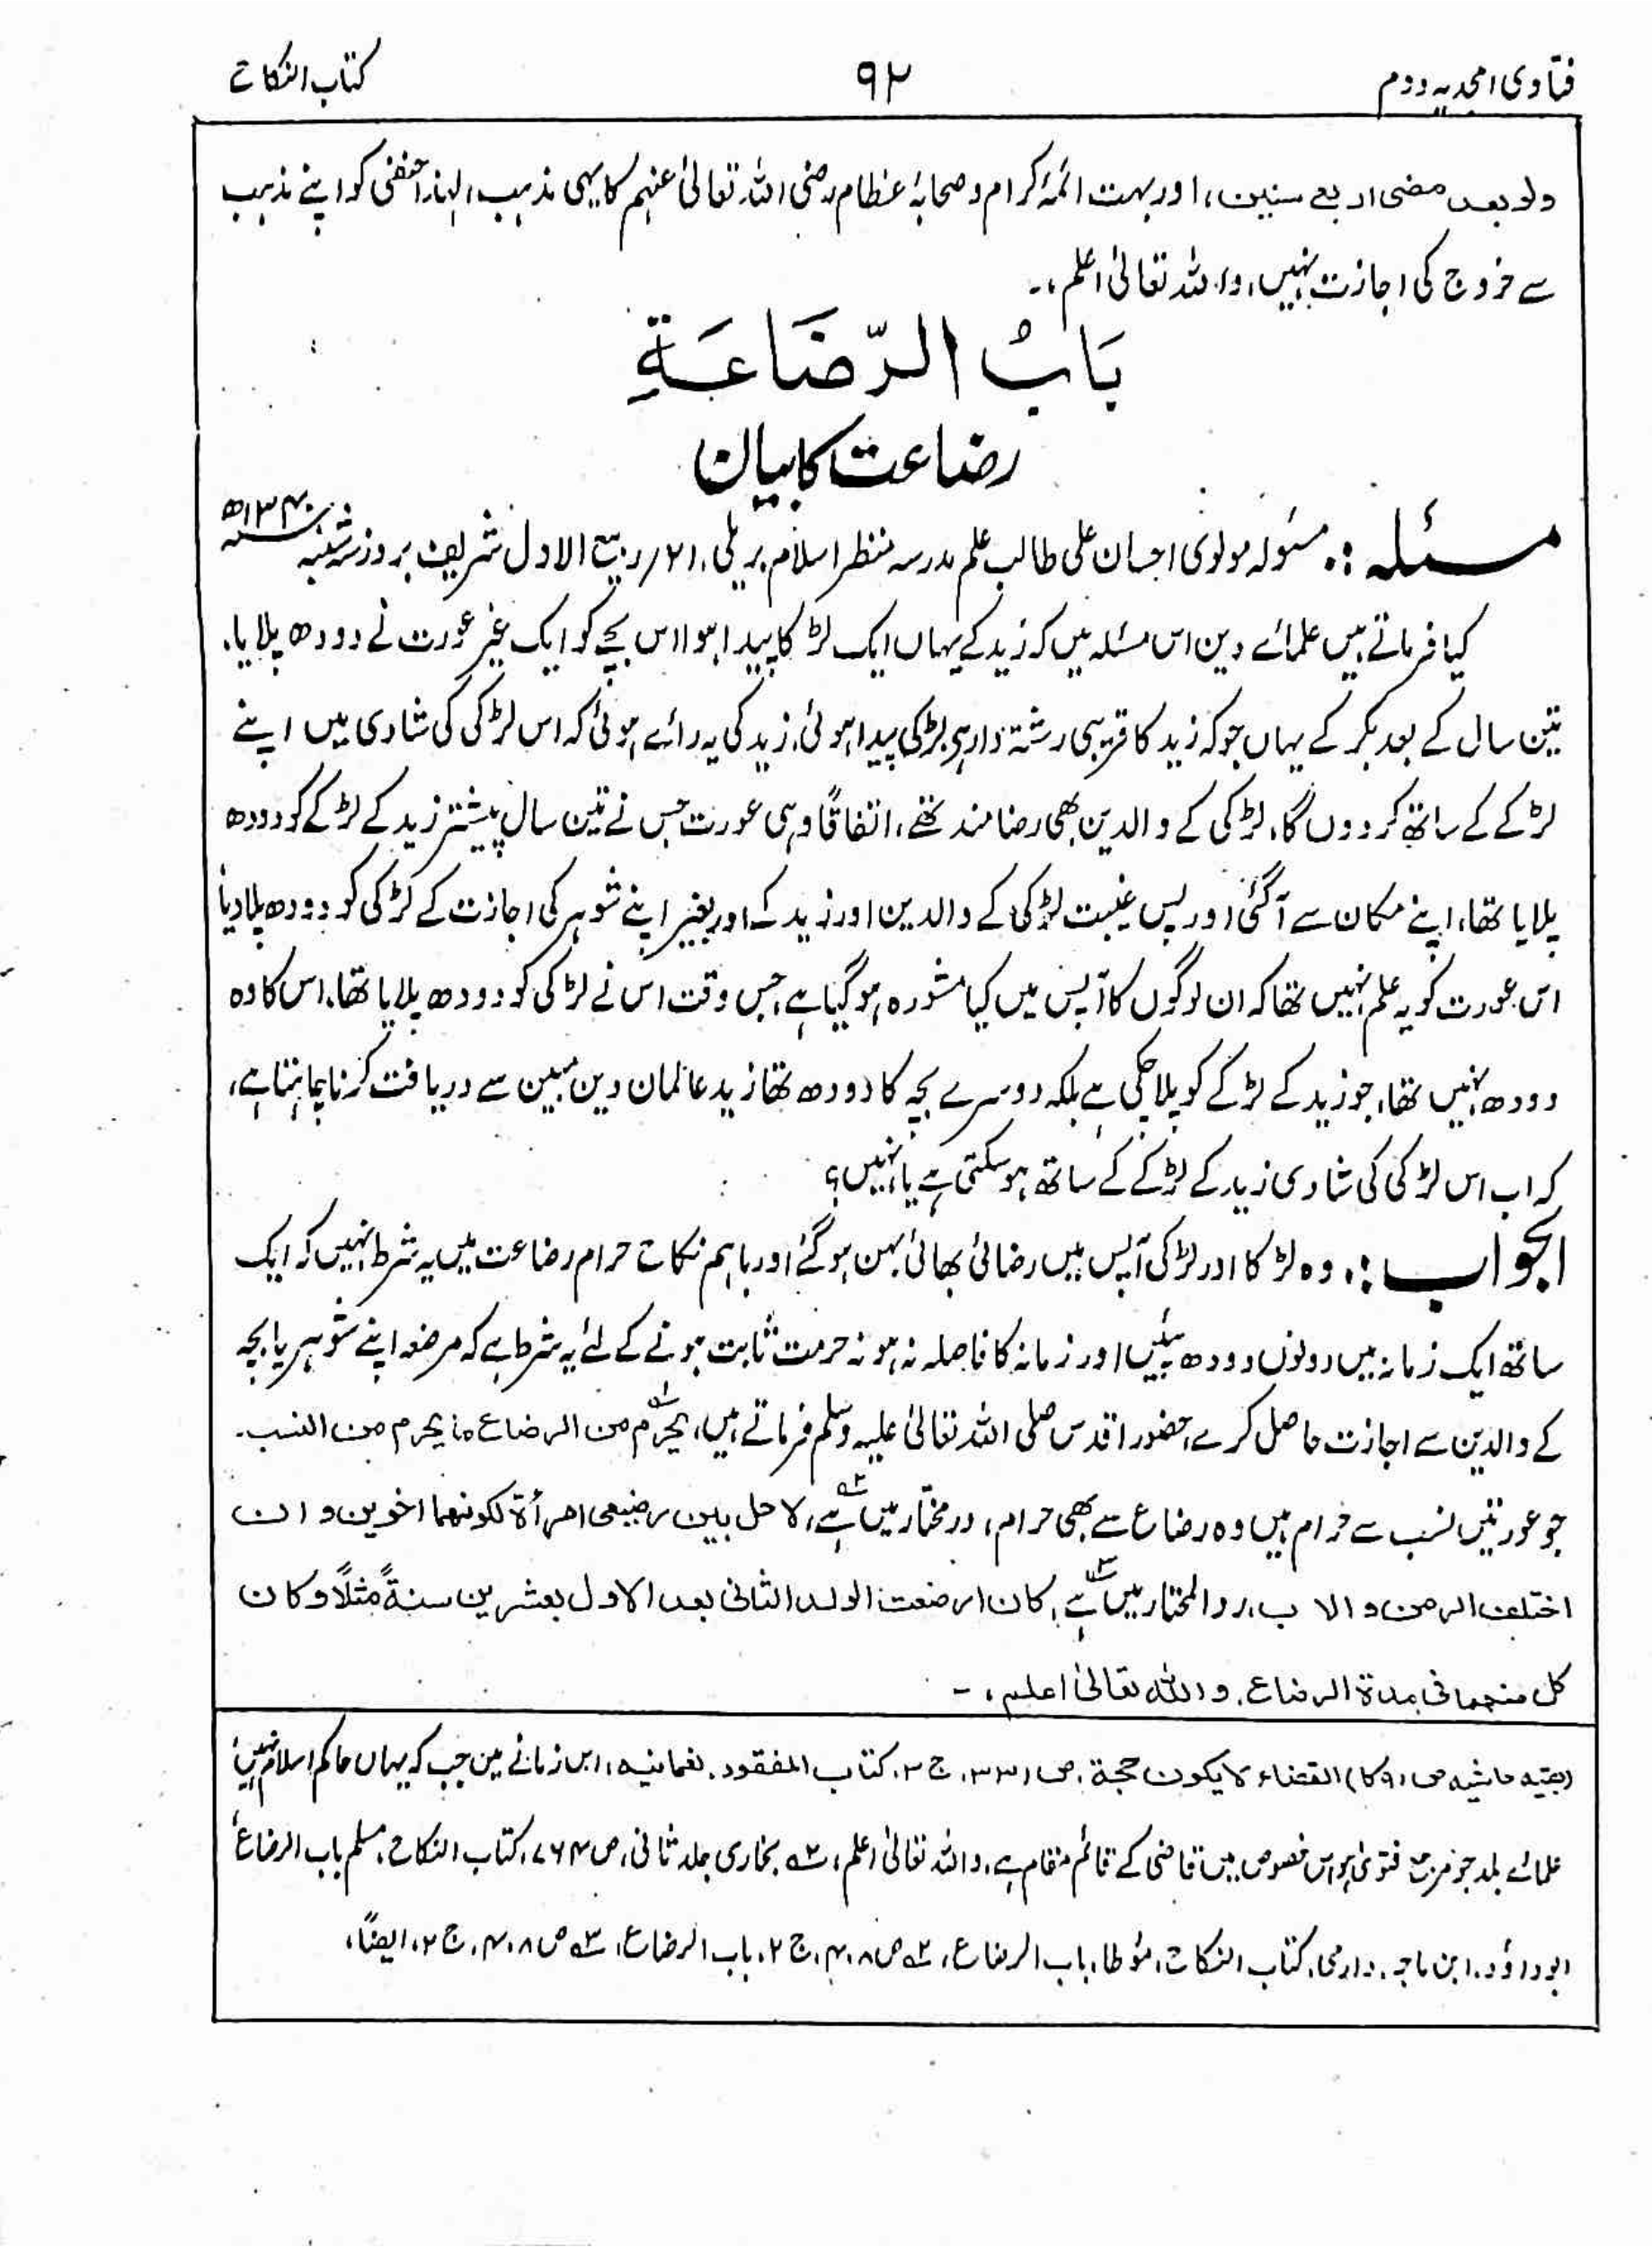 فتاوی امجدیہ دوم ۹۲ کتاب النکاح
ولو بعد مضی اربع سنین، اور بہت ائمۂ کرام و صحابۂ عظام رضی اللہ تعالیٰ عنہم کا یہی مذہب، لہٰذا حنفی کو اپنے مذہب
سے خروج کی اجازت نہیں، واللہ تعالیٰ اعلم،۔
بَابُ الرَّضَاعَةِ
رضاعت کا بیان
مسئلہ :۔ مسئولہ مولوی احسان علی طالب علم مدرسہ منظر اسلام بریلی، ۲۱/ ربیع الاول شریف بروز شنبہ ۱۳۴۰ھ
کیا فرماتے ہیں علمائے دین اس مسئلہ میں کہ زید کے یہاں ایک لڑکا پیدا ہوا اس بچے کو ایک غیر عورت نے دودھ پلایا،
تین سال کے بعد بکر کے یہاں جو کہ زید کا قریبی رشتہ دار ہے لڑکی پیدا ہوئی، زید کی یہ رائے ہوئی کہ اس لڑکی کی شادی میں اپنے
لڑکے کے ساتھ کردوں گا، لڑکی کے والدین بھی رضامند تھے، اتفاقاً وہی عورت جس نے تین سال پیشتر زید کے لڑکے کو دودھ
پلایا تھا، اپنے مکان سے آگئی اور پس غیبت لڑکی کے والدین اور زید کے اور بغیر اپنے شوہر کی اجازت کے لڑکی کو دودھ پلا دیا
اس عورت کو یہ علم نہیں تھا کہ ان لوگوں کا آپس میں کیا مشورہ ہو گیا ہے، جس وقت اس نے لڑکی کو دودھ پلایا تھا، اس کا وہ
دودھ نہیں تھا، جو زید کے لڑکے کو پلا چکی ہے بلکہ دوسرے بچہ کا دودھ تھا زید عالمان دین مبین سے دریافت کرنا چاہتا ہے،
کہ اب اس لڑکی کی شادی زید کے لڑکے کے ساتھ ہو سکتی ہے یا نہیں؟
الجواب :۔ وہ لڑکا اور لڑکی آپس میں رضائی بھائی بہن ہو گئے اور باہم نکاح حرام رضاعت میں یہ شرط نہیں کہ ایک
ساتھ ایک زمانہ میں دونوں دودھ پئیں اور زمانہ کا فاصلہ نہ ہو نہ حرمت ثابت ہونے کے لئے یہ شرط ہے کہ مرضعہ اپنے شوہر یا بچہ
کے والدین سے اجازت حاصل کرے، حضور اقدس صلی اللہ تعالیٰ علیہ وسلم فرماتے ہیں، یحرم من الرضاع ما یحرم من النسب۔
جو عورتیں نسب سے حرام ہیں وہ رضاع سے بھی حرام، درمختار میں ہے، لا حل بین رضیعی امرأة لکونھما اخوین و ان
اختلف الزمن و الاب، ردالمحتار میں ہے، کان ارضعت الولد الثانی بعد الاول بعشرین سنةً مثلاً و کان
کل منھما فی مدة الرضاع، واللہ تعالیٰ اعلم،۔
(بقیہ حاشیہ ص ۹۱ کا) القضاء لا یکون حجة، ص ۳۳۱، ج ۳، کتاب المفقود، نعمانیہ، اس زمانے میں جب کہ یہاں حاکم اسلام نہیں
علمائے بلد جو مرجع فتویٰ ہو اس خصوص میں قاضی کے قائم مقام ہے، واللہ تعالیٰ اعلم، بخاری جلد ثانی، ص ۷۶۴، کتاب النکاح، مسلم باب الرضاع
ابوداؤد، ابن ماجہ، دارمی، کتاب النکاح، مؤطا، باب الرضاع، ۲ ص ۴۰۸، ج ۲، باب الرضاع، ۳ ص ۴۰۸، ج ۲، ایضاً،